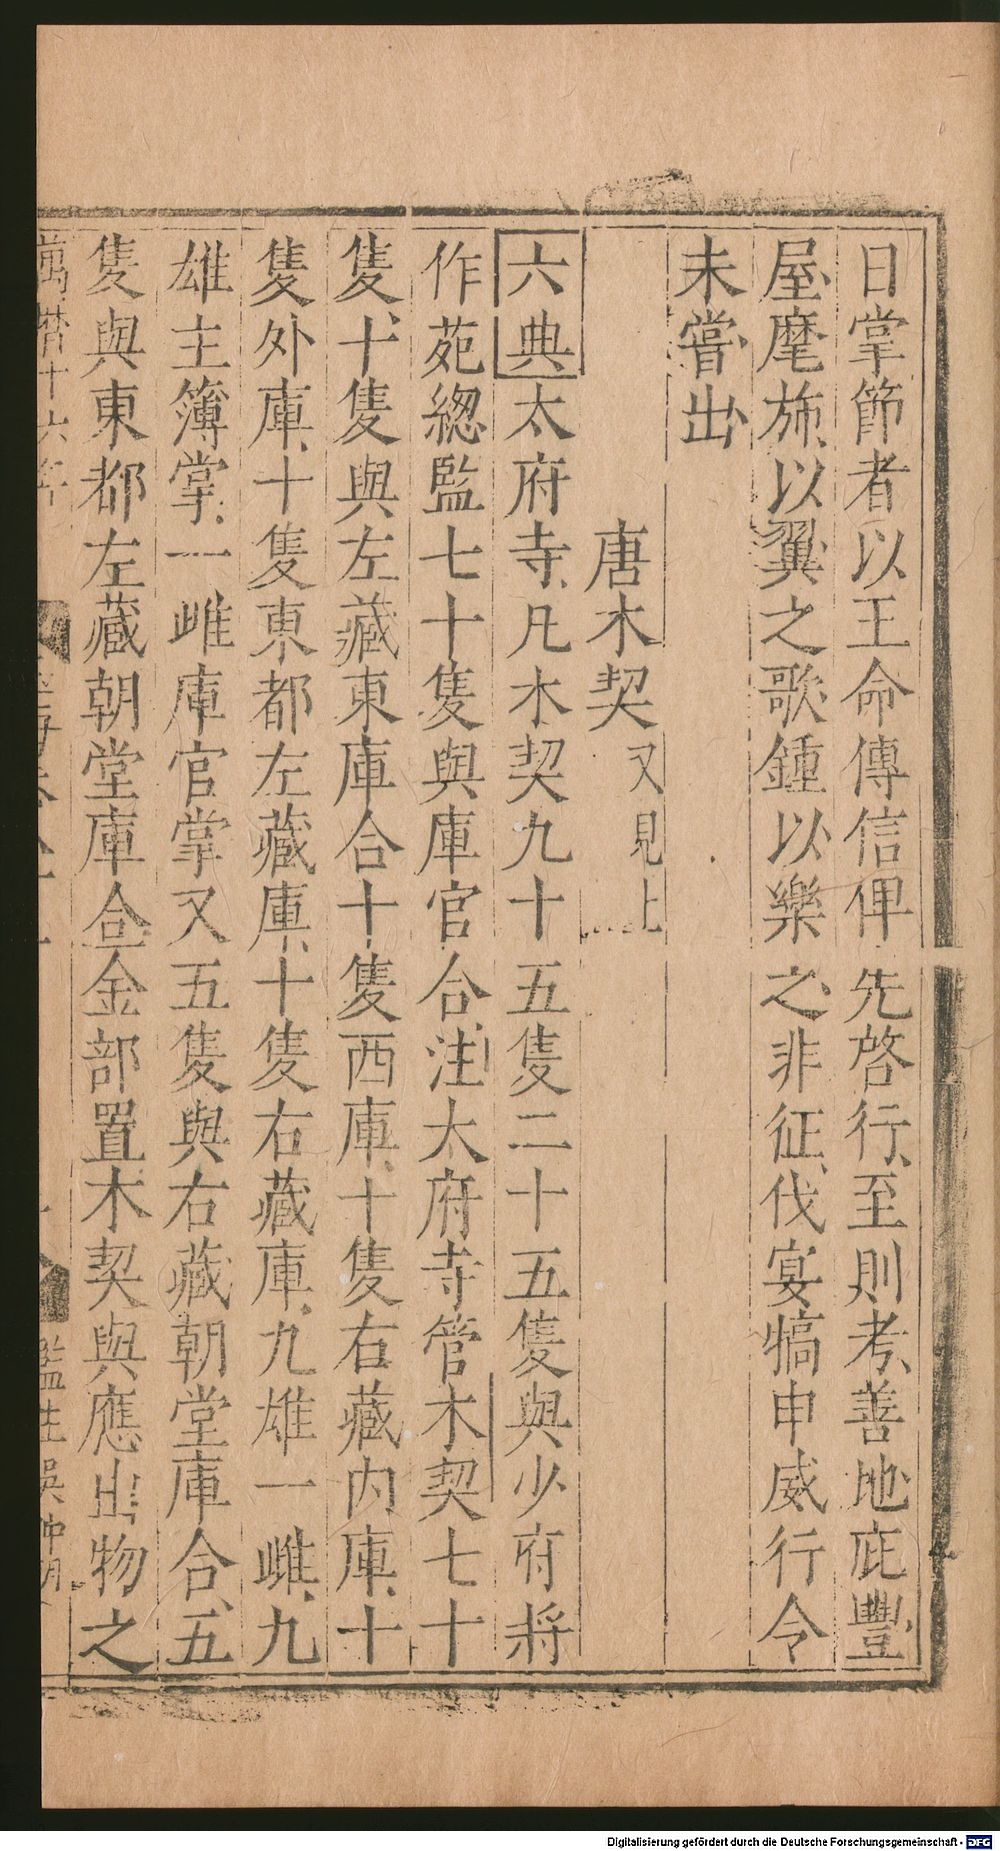 日掌節者以王命傳信俾先啓行至則考善地庇豐
屋麾旆以翼之歌鍾以樂之非征伐宴犒申威行令
未嘗出
唐木契又見上
六典太府寺凡木契九十五隻二十五隻與少府將
作苑總監七十隻與庫官合注太府寺管木契七十
隻十隻與左藏東庫合十隻西庫十隻右藏內庫十
隻外庫十隻東都左藏庫十隻右藏庫九雄一雌九
雄主簿掌一雌庫官掌又五隻與右藏朝堂庫合五
隻與東都左藏朝堂庫合金部置木契與應出物之
萬曆十六年
監生吳仲明
Digitalisierung gefördert durch die Deutsche Forschungsgemeinschaft - DFG